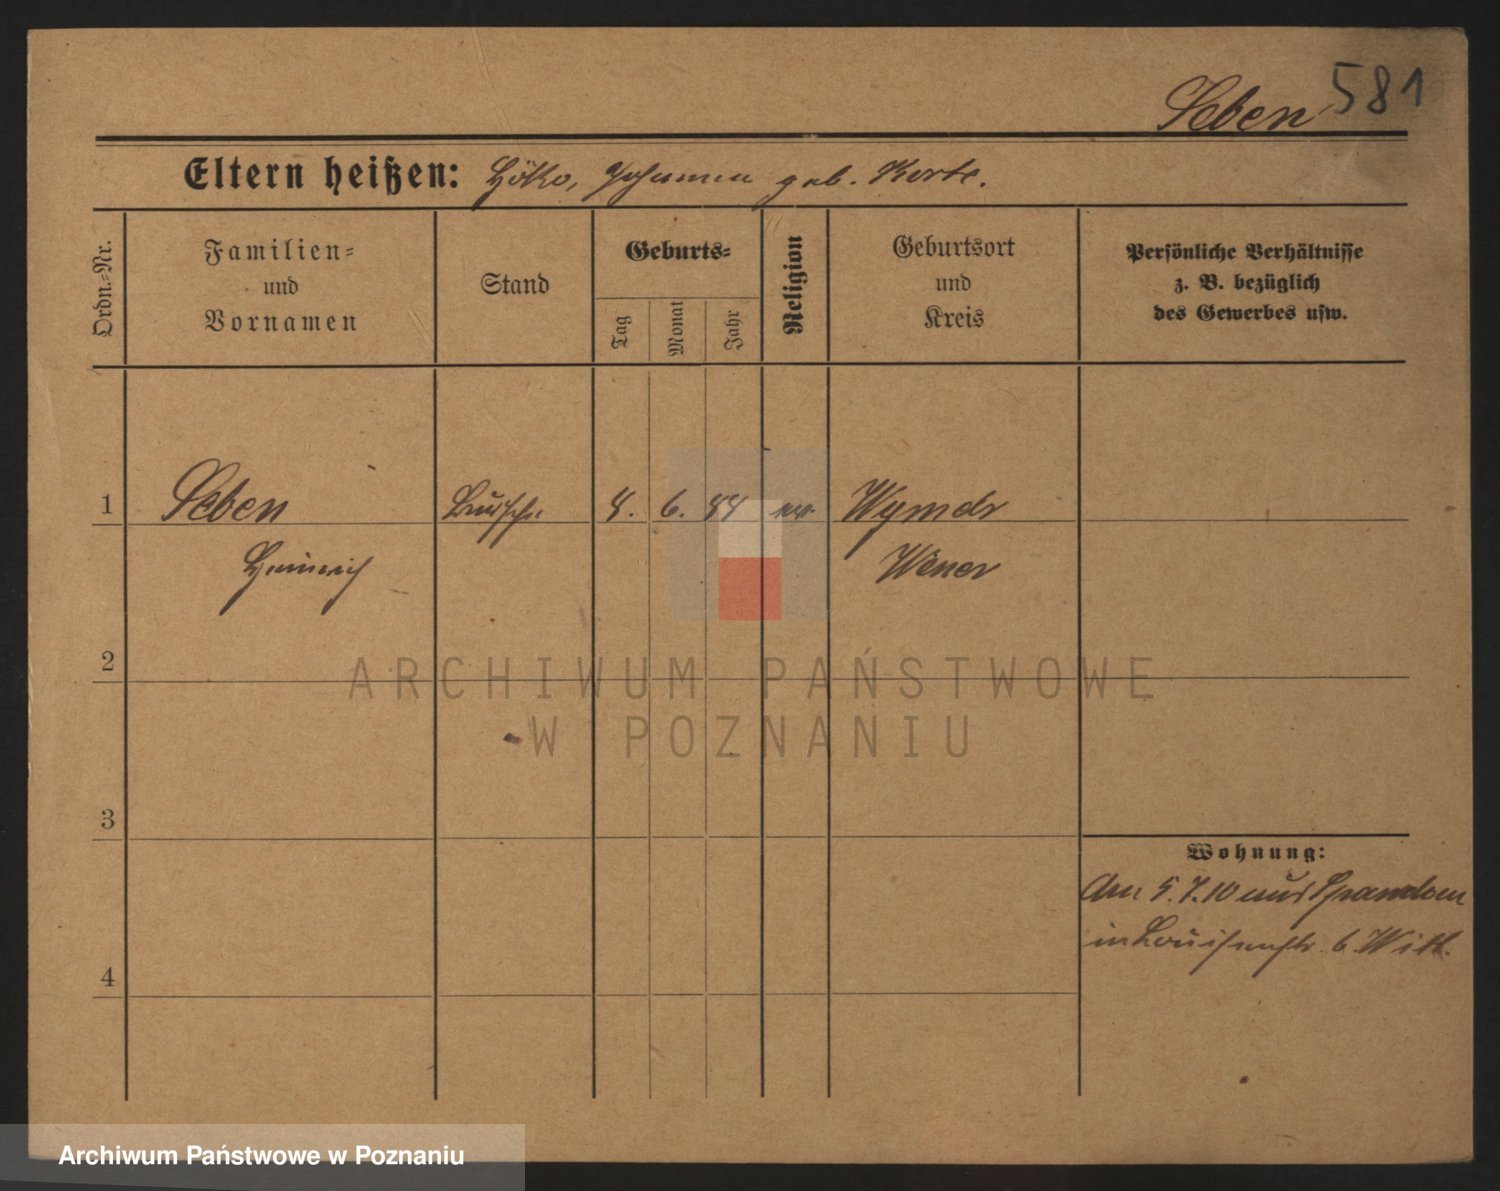 581
Seben
Eltern heißen: Hökо, Johanna geb. Korte.
Ordn.-Nr.
Familien-
und
Vornamen
Stand
Geburts-
Tag
Monat
Jahr
Religion
Geburtsort
und
Kreis
Persönliche Verhältnisse
z. B. bezüglich
des Gewerbes usw.
1 Seben 8. 6. 88 ev. Wymer
Heinrich Wener
2
3
4
Wohnung:
Am 5.7.10 aus Spandau
in Louisenstr. 6 Witt.
ARCHIWUM PAŃSTWOWE
W POZNANIU
Archiwum Państwowe w Poznaniu